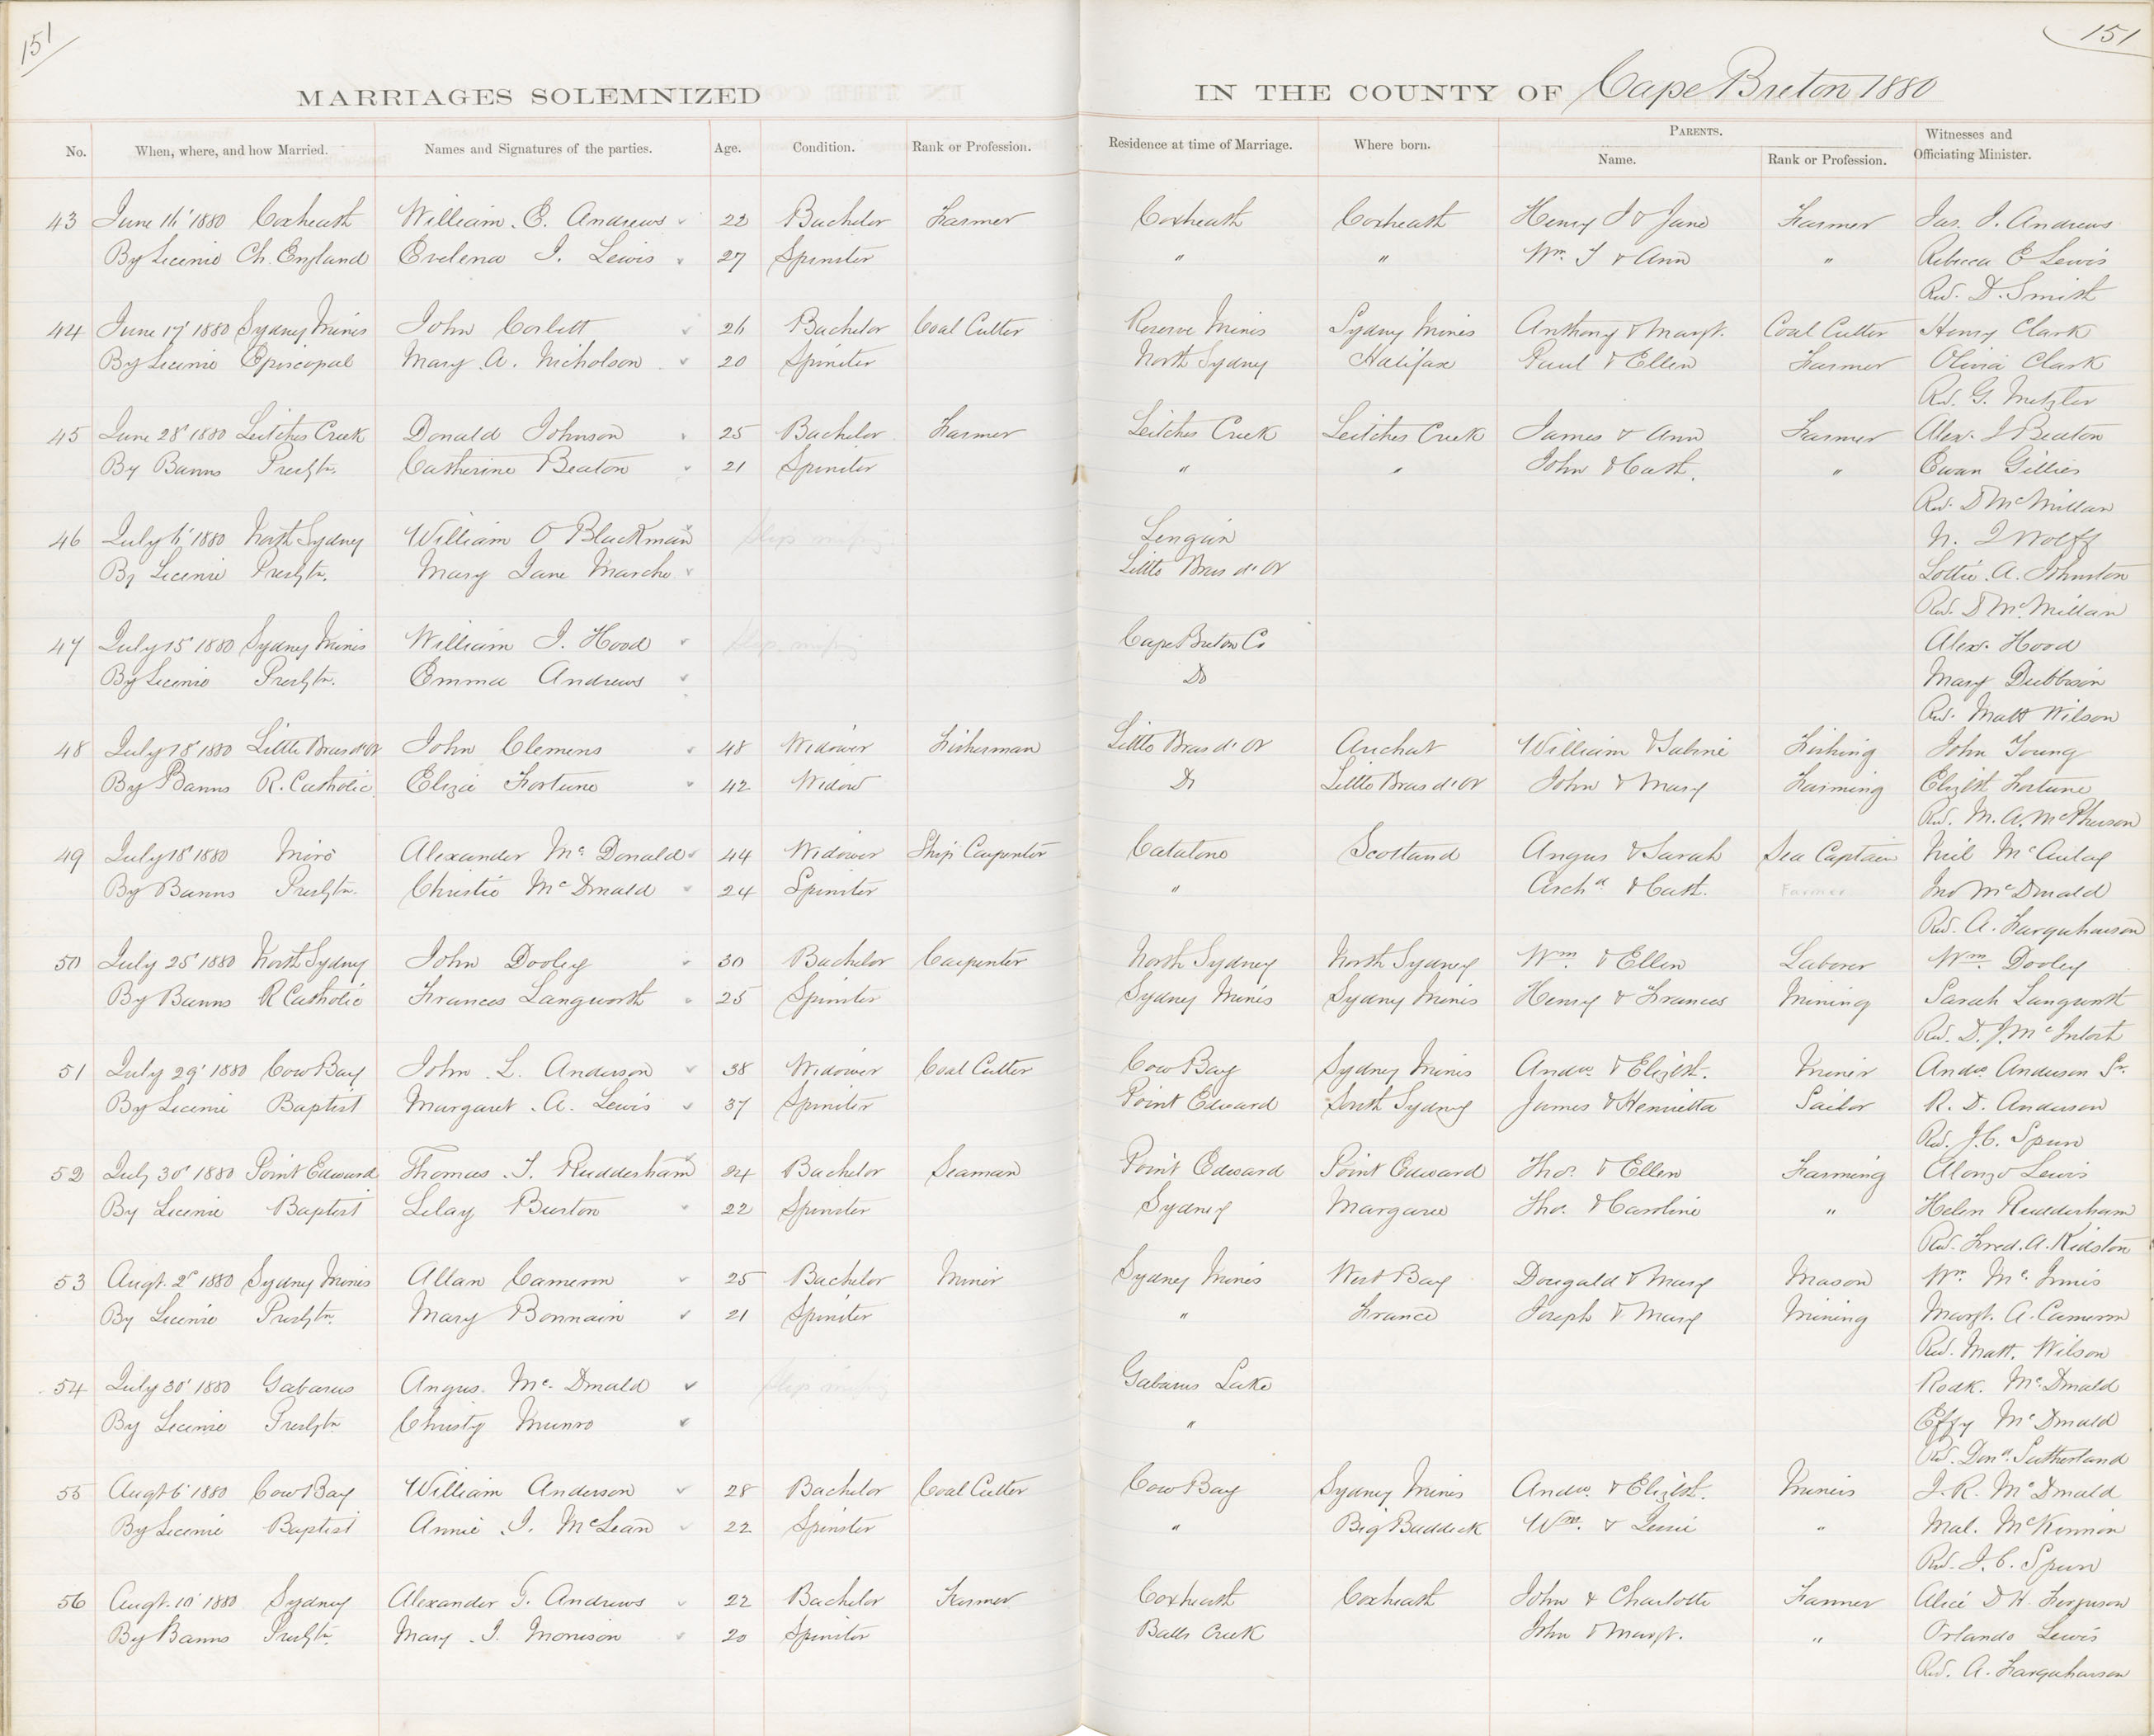 151
151
MARRIAGES SOLEMNIZED IN THE COUNTY OF Cape Breton 1880
No. When, where, and how Married. Names and Signatures of the parties. Age. Condition. Rank or Profession. Residence at time of Marriage. Where born. PARENTS. Name. Rank or Profession. Witnesses and Officiating Minister.
43 June 16' 1880 Coxheath William E. Andrews 22 Bachelor Farmer Coxheath Coxheath Henry J & Jane Farmer Jas. J. Andrews
By Licence Ch. England Evelena J. Lewis 27 Spinster " " Wm. J & Ann " Rebecca E Lewis
Rev. D. Smith
44 June 17' 1880 Sydney Mines John Corbett 26 Bachelor Coal Cutter Reserve Mines Sydney Mines Anthony & Margt. Coal Cutter Henry Clark
By Licence Episcopal Mary A. Nicholson 20 Spinster North Sydney Halifax Paul & Ellen Farmer Olivia Clark
Rev. G. Metzler
45 June 28' 1880 Leitches Creek Donald Johnson 25 Bachelor Farmer Leitches Creek Leitches Creek James & Ann Farmer Alex. J Beaton
By Banns Presbtn. Catherine Beaton 21 Spinster " " John & Cath. " Ewan Gillies
Rev. D McMillan
46 July 6' 1880 North Sydney William O Blackman slip missing Lingan N. J Wolff
By Licence Presbtn. Mary Jane Marche Little Bras d'Or Lottie. A. Johnston
Rev. D McMillan
47 July 15' 1880 Sydney Mines William J. Hood slip missing Cape Breton Co Alex. Hood
By Licence Presbtn. Emma Andrews Do Mary Dubbison
Rev. Matt Wilson
48 July 18' 1880 Little Bras d'Or John Clemens 48 Widower Fisherman Little Bras d'Or Arichat William & Sabine Fishing John Young
By Banns R. Catholic Eliza Fortune 42 Widow Do Little Bras d'Or John & Mary Farming Elizbt. Fortune
Rev. M. A. McPherson
49 July 18' 1880 Mira Alexander McDonald 44 Widower Ship Carpenter Catalone Scotland Angus & Sarah Sea Captain Neil McAulay
By Banns Presbtn. Christie McDonald 24 Spinster " Archd. & Cath. Farmer Jno McDonald
Rev. A. Farquharson
50 July 25' 1880 North Sydney John Dooley 30 Bachelor Carpenter North Sydney North Sydney Wm. & Ellen Laborer Wm. Dooley
By Banns R Catholic Frances Langworth 25 Spinster Sydney Mines Sydney Mines Henry & Frances Mining Sarah Langworth
Rev. D. J. McIntosh
51 July 29' 1880 Cow Bay John L. Anderson 38 Widower Coal Cutter Cow Bay Sydney Mines Andw. & Elizbt. Miner Andw. Anderson Sr.
By Licence Baptist Margaret. A. Lewis 37 Spinster Point Edward South Sydney James & Henrietta Sailor R. D. Anderson
Rev. J. C. Spurr
52 July 30' 1880 Point Edward Thomas J. Rudderham 24 Bachelor Seaman Point Edward Point Edward Tho. & Ellen Farming Alonzo Lewis
By Licence Baptist Lelay Burton 22 Spinster Sydney Margaree Tho. & Caroline " Helen Rudderham
Rev. Fred. A. Kidston
53 Augt. 2' 1880 Sydney Mines Allan Cameron 25 Bachelor Miner Sydney Mines West Bay Dougald & Mary Mason Wm. McInnis
By Licence Presbtn. Mary Bonnain 21 Spinster " France Joseph & Mary Mining Margt. A. Cameron
Rev. Matt. Wilson
54 July 30' 1880 Gabarus Angus. McDonald slip missing Gabarus Lake Rodk. McDonald
By Licence Presbtn Christy Munro " Effy McDonald
Rev. Dond. Sutherland
55 Augt 6' 1880 Cow Bay William Anderson 28 Bachelor Coal Cutter Cow Bay Sydney Mines Andw. & Elizbt. Miners J. R. McDonald
By Licence Baptist Annie. J. McLean 22 Spinster " Big Baddeck Wm. & Jessie " Mal. McKinnon
Rev. J. C. Spurr
56 Augt. 10' 1880 Sydney Alexander G. Andrews 22 Bachelor Farmer Coxheath Coxheath John & Charlotte Farmer Alice D H. Ferguson
By Banns Presbtn. Mary. J. Morrison 20 Spinster Balls Creek John & Margt. " Orlando Lewis
Rev. A. Farquharson